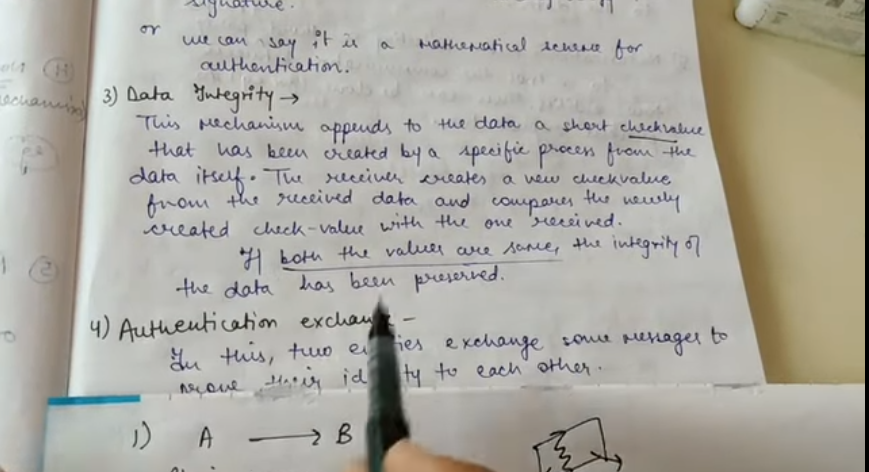 signature.
or
we can say it is a mathematical scheme for
authentication.
3) Data Integrity →
This mechanism appends to the data a short checkvalue
that has been created by a specific process from the
data itself. The receiver creates a new checkvalue
from the received data and compares the newly
created check-value with the one received.
If both the values are same, the integrity of
the data has been preserved.
4) Authentication exchange -
In this, two entities exchange some messages to
prove their identity to each other.
1) A → B